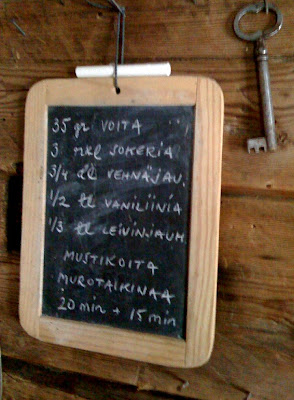 35 gr VOITA
3 rkl SOKERIA
3/4 dl VEHNÄJAU.
1/2 tl VANILIINIA
1/3 tl LEIVINJAUH.
MUSTIKOITA
MUROTAIKINAA
20 min + 15 min